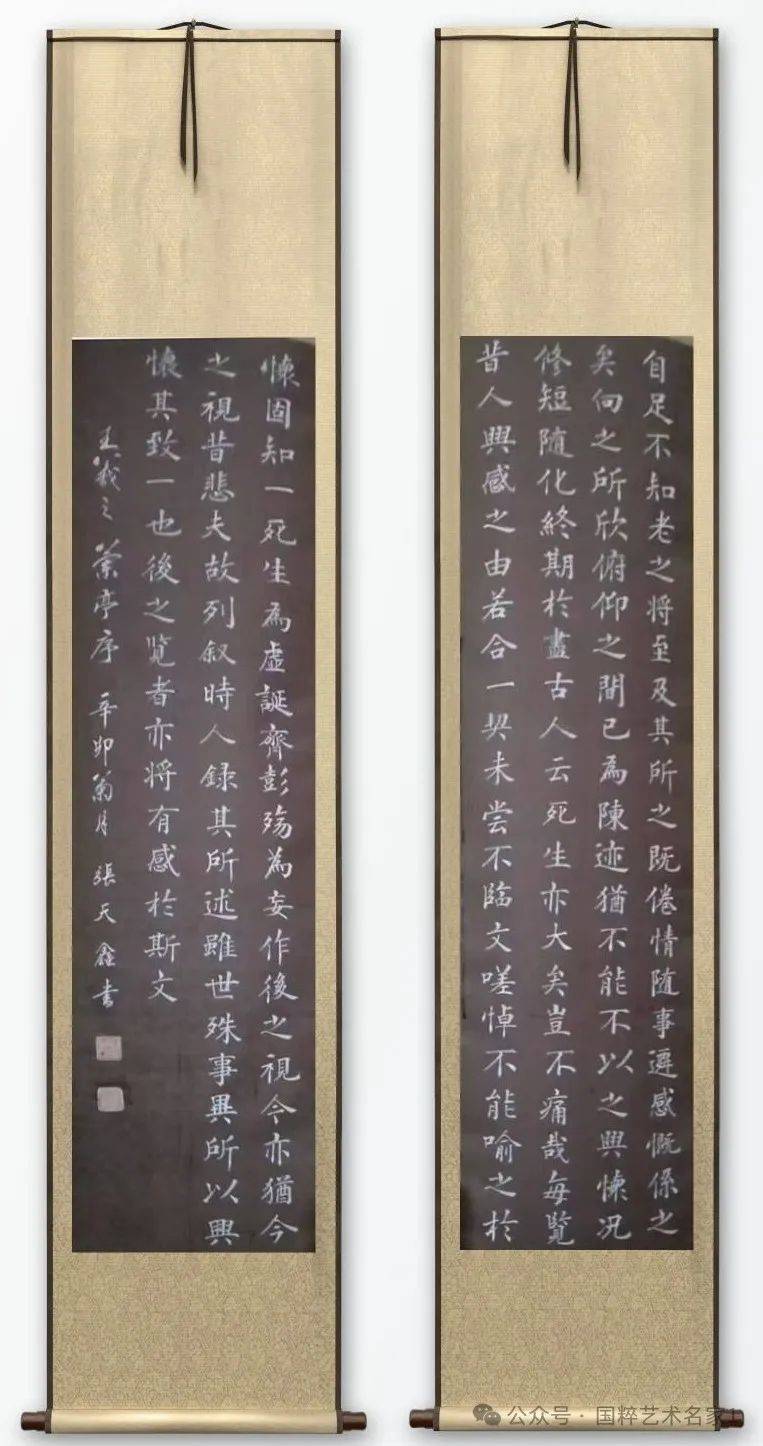 自足不知老之将至及其所之既倦情随事遷感慨係之
矣向之所欣俯仰之間已為陳迹猶不能不以之興懷况
修短随化終期於盡古人云死生亦大矣豈不痛哉每覽
昔人興感之由若合一契未尝不臨文嗟悼不能喻之於
懷固知一死生為虛誕齊彭殤為妄作後之視今亦猶今
之視昔悲夫故列叙時人録其所述雖世殊事異所以興
懷其致一也後之覽者亦将有感於斯文
王羲之蘭亭序 辛卯菊月 張天鑫書
公众号·国粹艺术名家